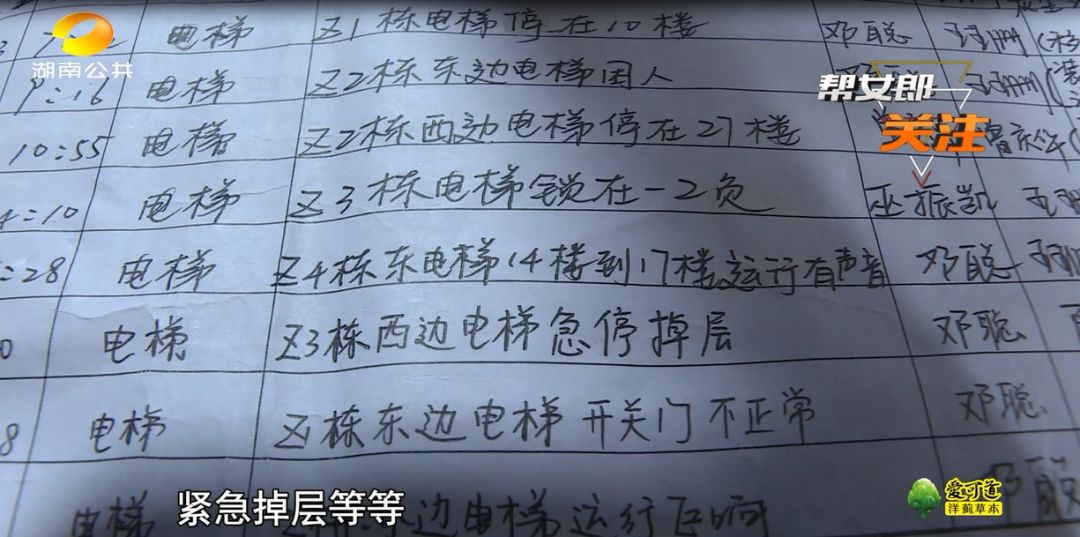 湖南公共
帮女郎
关注
电梯 Z1栋电梯停在10楼 邓聪
9:16 电梯 Z2栋东边电梯困人
10:55 电梯 Z2栋西边电梯停在27楼
4:10 电梯 Z3栋电梯锁在-2负 巫振凯
:28 电梯 Z4栋东电梯14楼到17楼运行有声音 邓聪
0 电梯 Z3栋西边电梯急停掉层 邓聪
8 电梯 Z1栋东边电梯开关门不正常 邓聪
电梯 边电梯运行
紧急掉层等等
爱可道
洋蓟草本